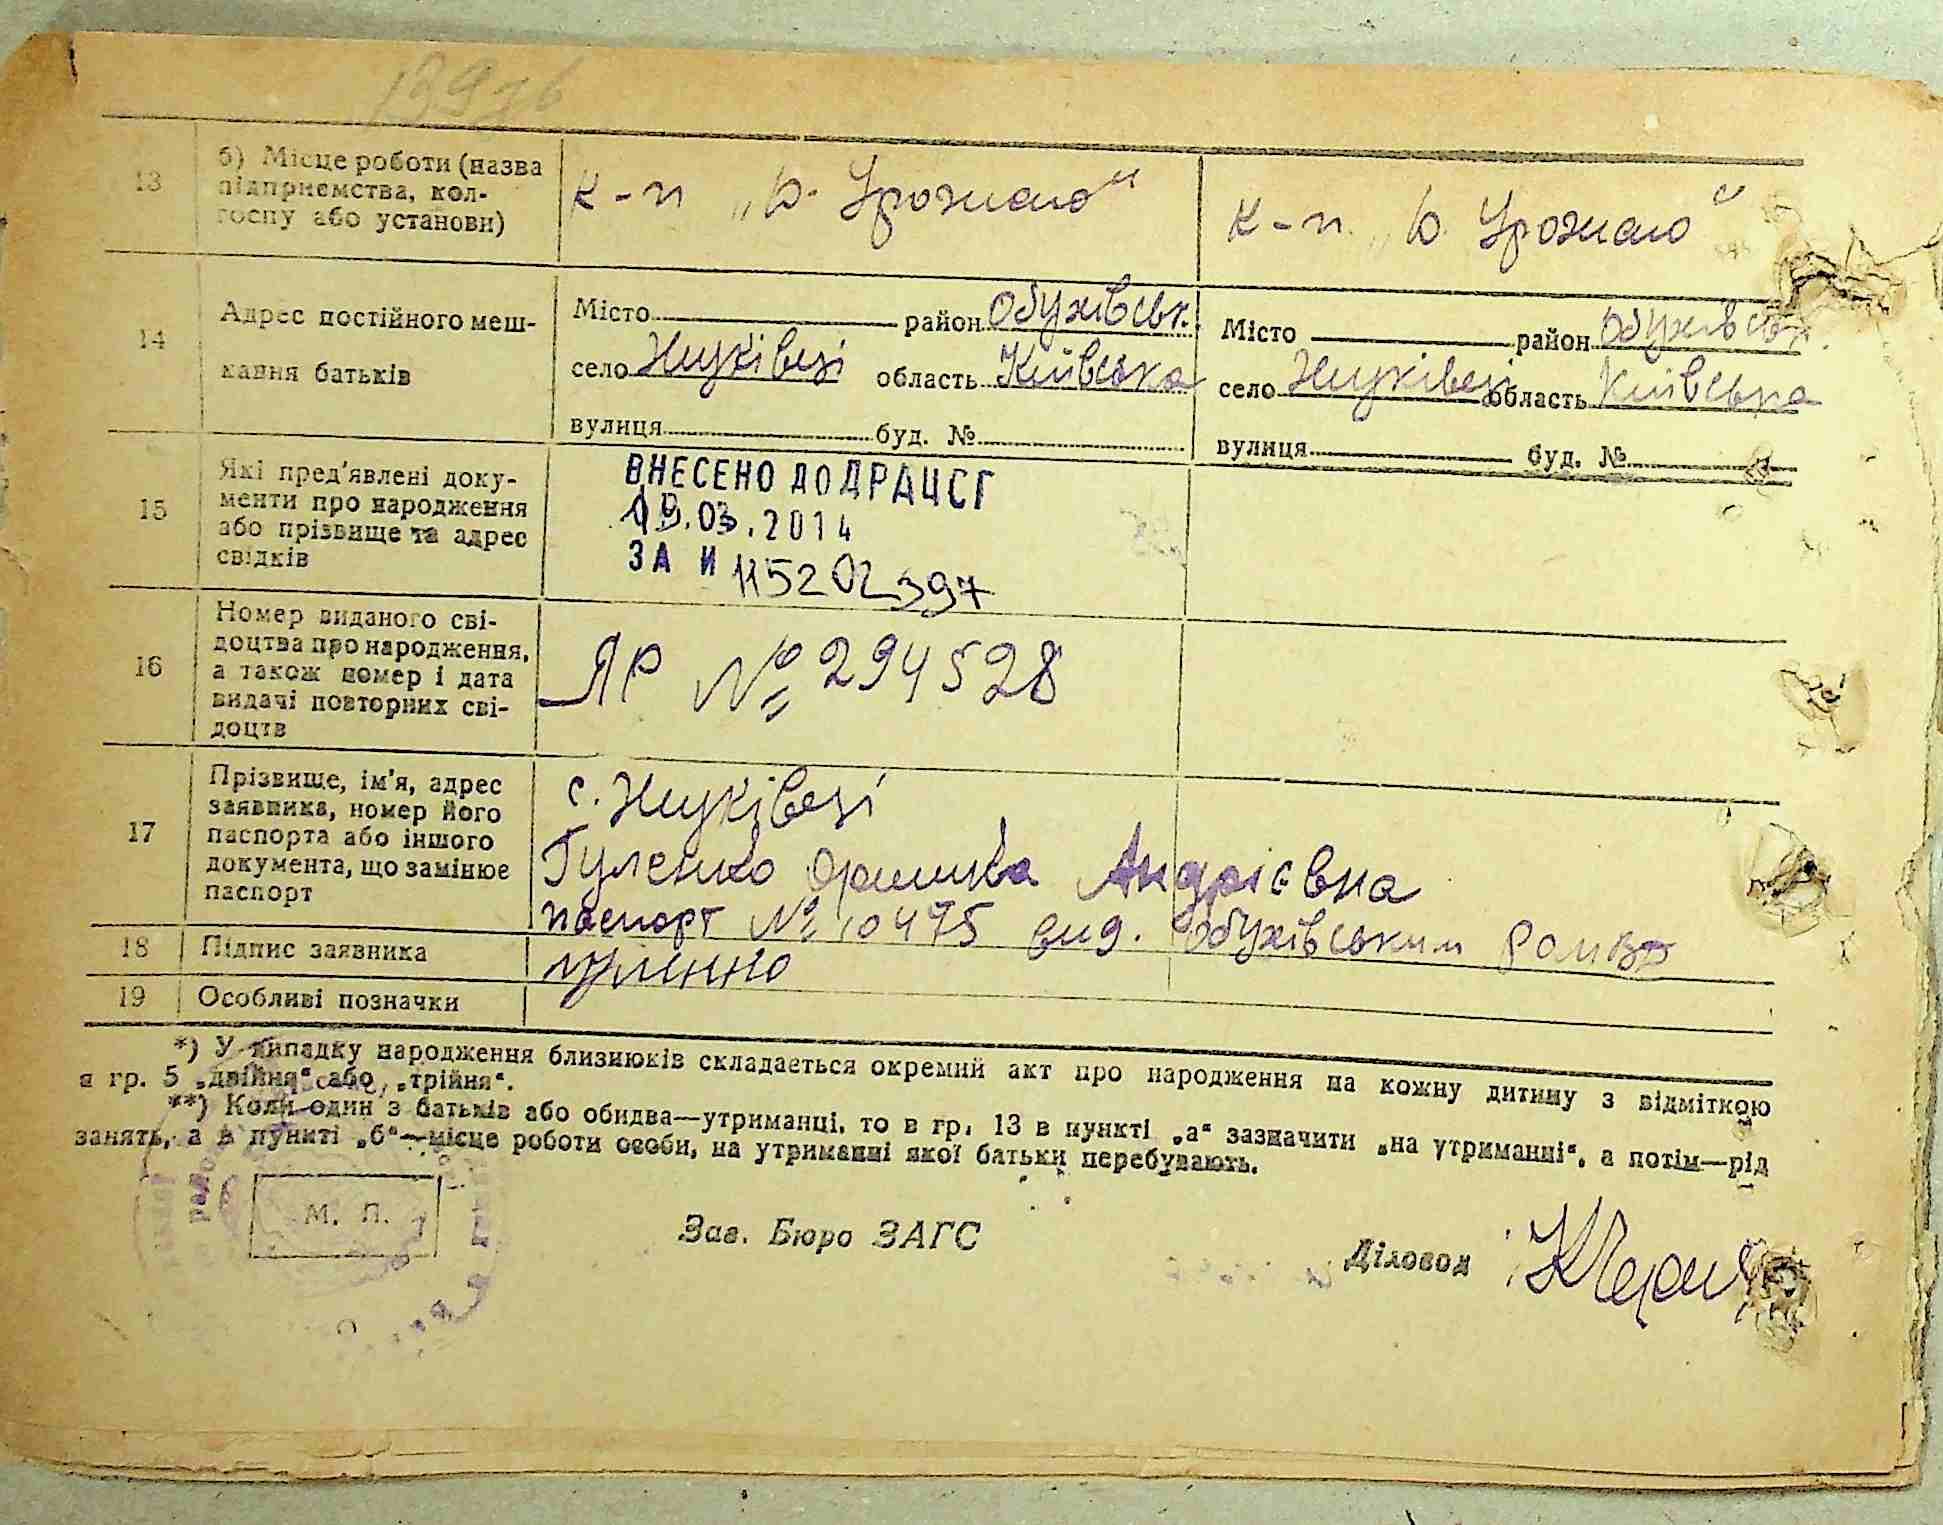 139 зв
13
б) Місце роботи (назва
підприємства, кол-
госпу або установи)
к-п „Б. Урожаю“
к-п „Б. Урожаю“
14
Адрес постійного меш-
кання батьків
Місто район Обухівськ.
село Нщуківці область Київська
вулиця буд. №
Місто район Обухівськ.
село область Київська
вулиця буд. №
15
Які пред'явлені доку-
менти про народження
або прізвище та адрес
свідків
ВНЕСЕНО ДО ДРАЦСГ
19.03.2014
ЗА И 115202397
16
Номер виданого сві-
доцтва про народження,
а також номер і дата
видачі повторних сві-
доцтв
ЯР № 294528
17
Прізвище, ім'я, адрес
заявника, номер його
паспорта або іншого
документа, що замінює
паспорт
с.
Гуленко Андрієвна
паспорт № 10475 вид. Обухівським
18
Підпис заявника
19
Особливі позначки
*) У випадку народження близнюків складається окремий акт про народження на кожну дитину з відміткою
в гр. 5 „двійня“ або „трійня“.
**) Коли один з батьків або обидва—утриманці, то в гр. 13 в пункті „а“ зазначити „на утриманні“, а потім—рід
занять, а в пункті „б“—місце роботи особи, на утриманні якої батьки перебувають.
М. П.
Зав. Бюро ЗАГС
Діловод